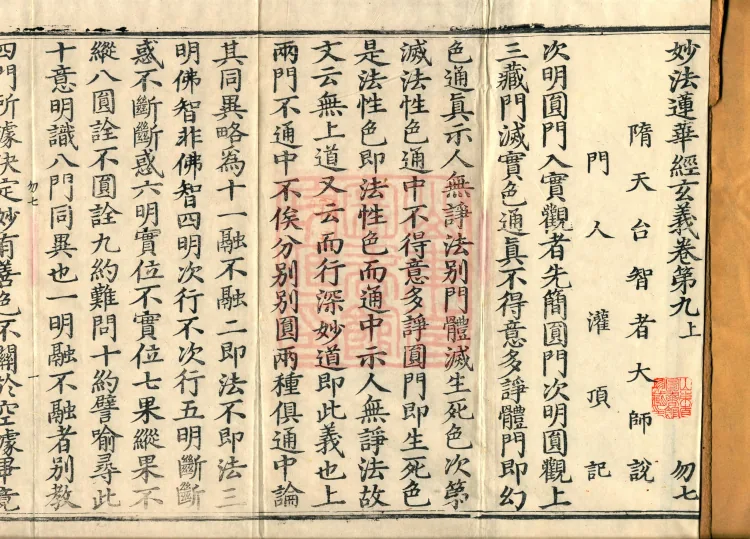 妙法蓮華經玄義卷第九上 勿七
隋天台智者大師說
門人灌頂記
次明圓門入實觀者先簡圓門次明圓觀上
三藏門滅實色通真不得意多諍體門即幻
色通真示人無諍法別門體滅生死色次第
滅法性色通中不得意多諍圓門即生死色
是法性色即法性色而通中示人無諍法故
文云無上道又云而行深妙道即此義也上
兩門不通中不俟分別別圓兩種俱通中論
其同異略為十一融不融二即法不即法三
明佛智非佛智四明次行不次行五明斷斷
惑不斷斷惑六明實位不實位七果縱果不
縱八圓詮不圓詮九約難問十約譬喻尋此
十意明識八門同異也一明融不融者別教
勿七 一
四門所據決定妙有善色不關於空據畢竟